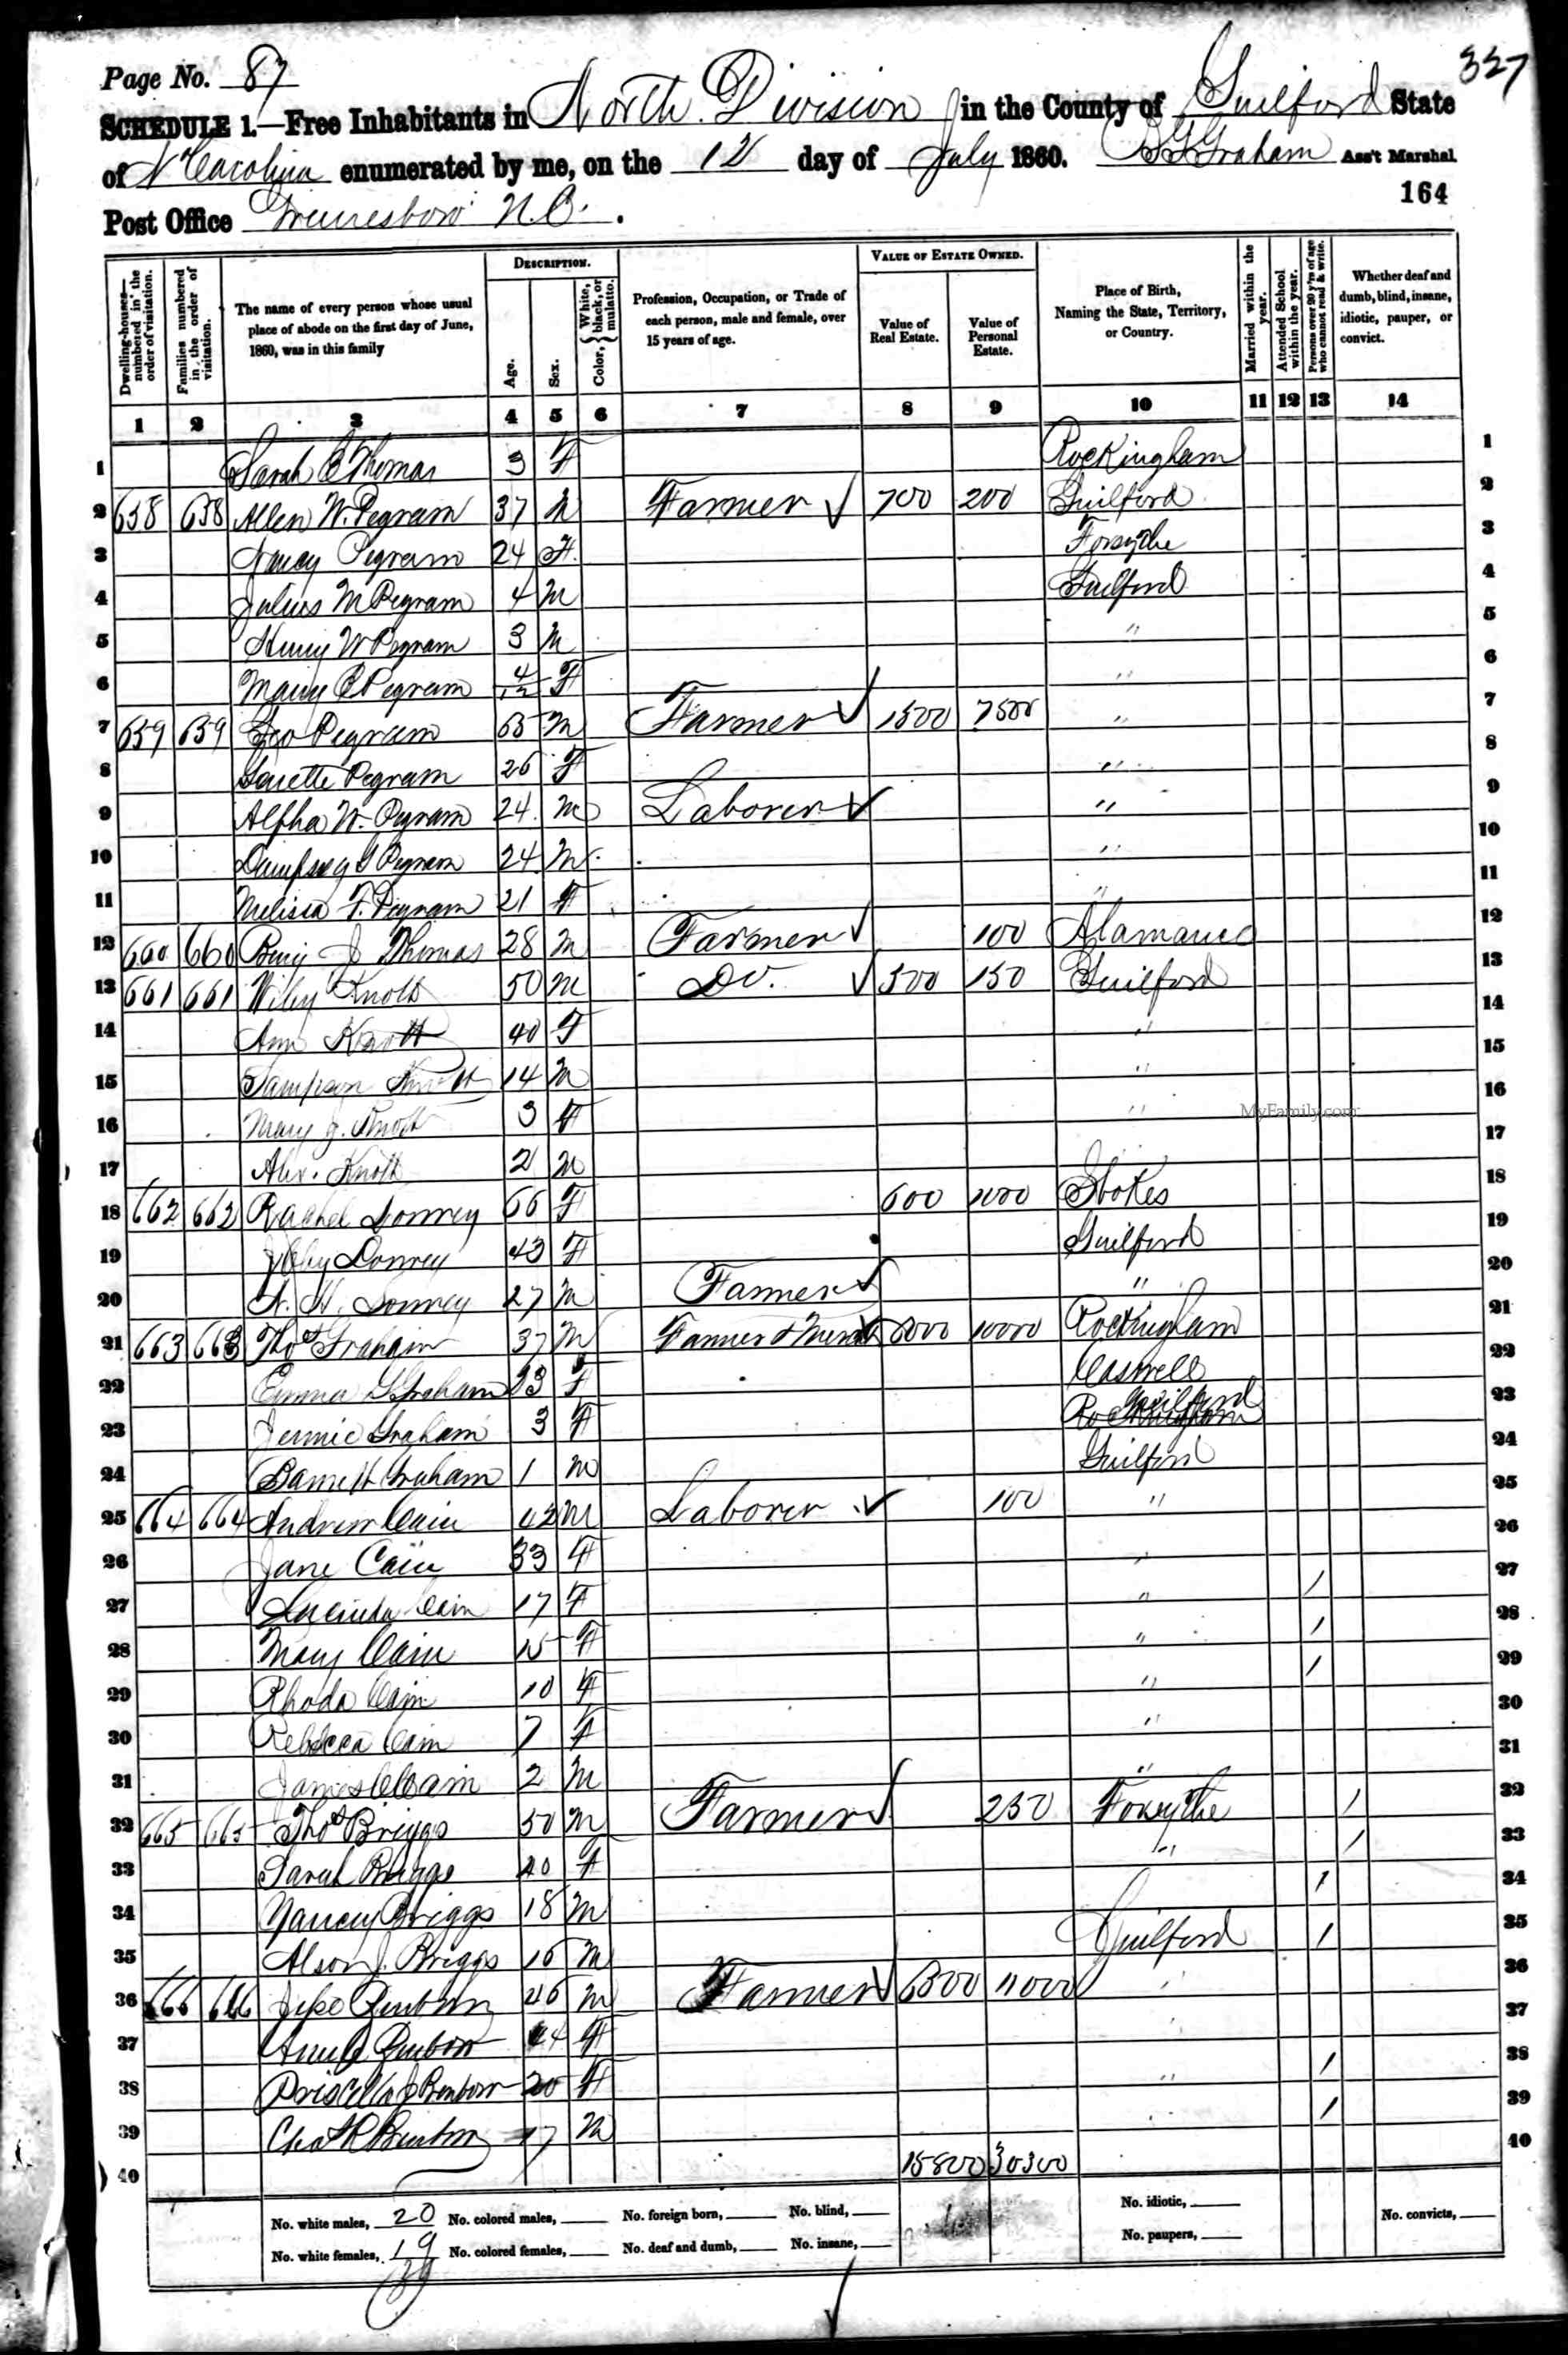 Page No. 87
327
SCHEDULE 1.—Free Inhabitants in North Division in the County of Guilford State
of N Carolina enumerated by me, on the 12 day of July 1860. Graham Ass't Marshal
164
Post Office Greensboro N.C.
Dwelling-houses—numbered in the order of visitation.
Families numbered in the order of visitation.
The name of every person whose usual place of abode on the first day of June, 1860, was in this family
DESCRIPTION.
Age.
Sex.
Color, { White, black, or mulatto.
Profession, Occupation, or Trade of each person, male and female, over 15 years of age.
VALUE OF ESTATE OWNED.
Value of Real Estate.
Value of Personal Estate.
Place of Birth, Naming the State, Territory, or Country.
Married within the year.
Attended School within the year.
Persons over 20 y'rs of age who cannot read & write.
Whether deaf and dumb, blind, insane, idiotic, pauper, or convict.
1 2 3 4 5 6 7 8 9 10 11 12 13 14
1 Sarah E Thomas 3 F Rockingham 1
2 658 658 Allen W. Pegram 37 M Farmer 700 200 Guilford 2
3 Nancy Pegram 24 F. Forsythe 3
4 Julius M Pegram 4 M Guilford 4
5 Henry W Pegram 3 M " 5
6 Mary E Pegram 4/12 F " 6
7 659 659 Geo Pegram 65 M Farmer 1500 7500 " 7
8 Pegram 26 F " 8
9 Alpha W. Pegram 24 M Laborer " 9
10 Dempsey G Pegram 24 M " 10
11 Melissa F. Pegram 21 F " 11
12 660 660 Benj J Thomas 28 M Farmer 100 Alamance 12
13 661 661 Wiley Knott 50 M Do. 500 150 Guilford 13
14 Ann Knott 40 F " 14
15 Sampson Knott 14 M " 15
16 Mary J. Knott 3 F " 16
MyFamily.com
17 Alex. Knott 2 M 17
18 662 662 Rachel 66 F 600 Stokes 18
19 43 F Guilford 19
20 27 M Farmer " 20
21 663 663 Thos Graham 37 M Farmer & 10000 Rockingham 21
22 Emma Graham 23 F Caswell 22
23 Jennie Graham 3 F Guilford Rockingham 23
24 Graham 1 M Guilford 24
25 664 664 Andrew Cain 42 M Laborer 100 " 25
26 Jane Cain 33 F " 26
27 Lucinda Cain 17 F " / 27
28 Mary Cain 15 F " / 28
29 Rhoda Cain 10 F " / 29
30 Rebecca Cain 7 F " 30
31 James Cain 2 M " 31
32 665 665 Thos Briggs 50 M Farmer 250 Forsythe / 32
33 Sarah Briggs 40 F " / 33
34 Yancey Briggs 18 M / 34
35 Alson J. Briggs 16 M Guilford / 35
36 666 666 Jesse Benbow 46 M Farmer 6300 11000 " 36
37 Benbow 44 F " 37
38 Priscilla J Benbow 20 F " / 38
39 Chas R Benbow 17 M " / 39
40 15800 30300 40
No. white males, 20 No. colored males, No. foreign born, No. blind, No. idiotic, No. convicts,
No. white females, 19 No. colored females, No. deaf and dumb, No. insane, No. paupers,
39